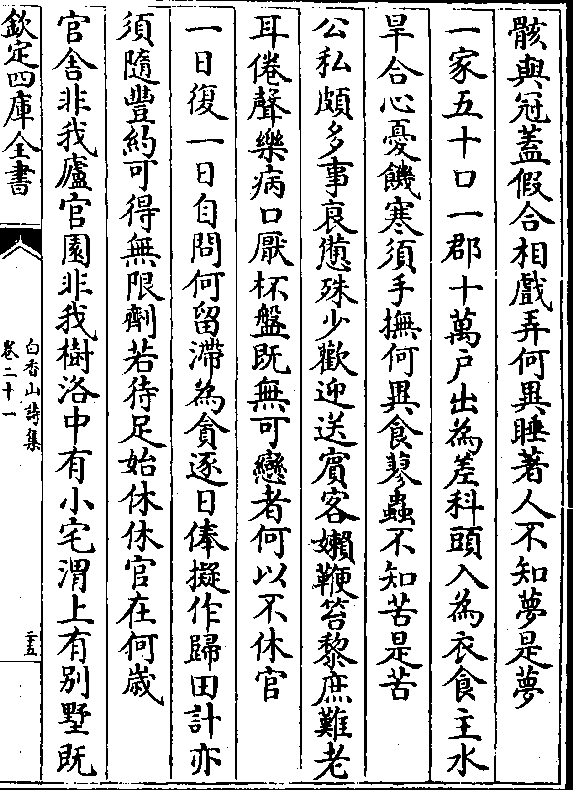 骸與冠蓋假合相戲弄何異睡著人不知夢是夢
一家五十口一郡十萬户出為差科頭入為衣食主水
旱合心憂饑寒須手撫何異食蓼蟲不知苦是苦
公私頗多事衰憊殊少歡迎送賓客嬾鞭笞黎庶難老
耳倦聲樂病口厭杯盤既無可戀者何以不休官
一日復一日自問何留滯為貪逐日俸擬作歸田計亦
須隨豐約可得無限劑若待足始休休官在何歲
官舍非我廬官園非我樹洛中有小宅渭上有别墅既
欽定四庫全書
白香山詩集
卷二十一
二十五